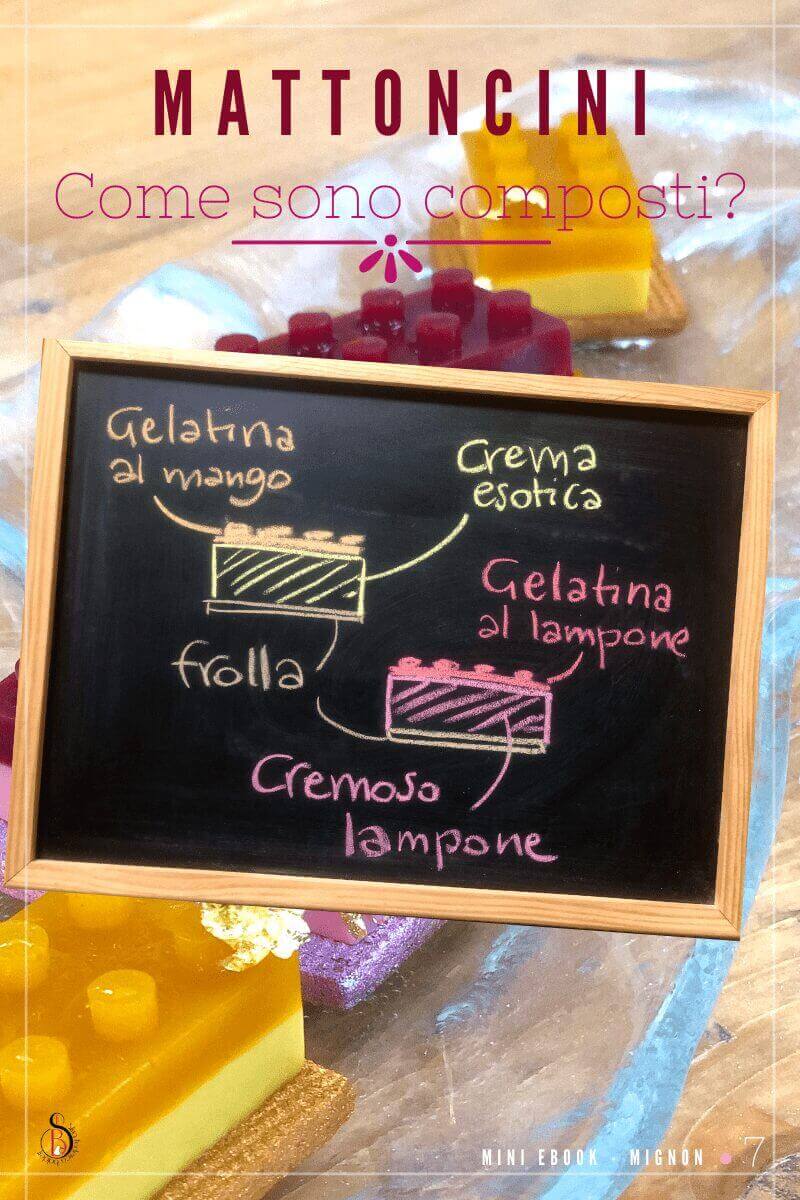 MATTONCINI
Come sono composti?
Gelatina
al mango
Crema
esotica
Gelatina
al lampone
frolla
Cremoso
lampone
MINI EBOOK - MIGNON • 7